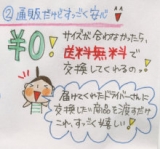 ② 通販だけどすっごく安心
¥0!
サイズが合わなかったら、
送料無料で
交換してくれるの。
届けてくれたドライバーさんに
交換したい商品を渡すだけ
これ、すっごく嬉しい!